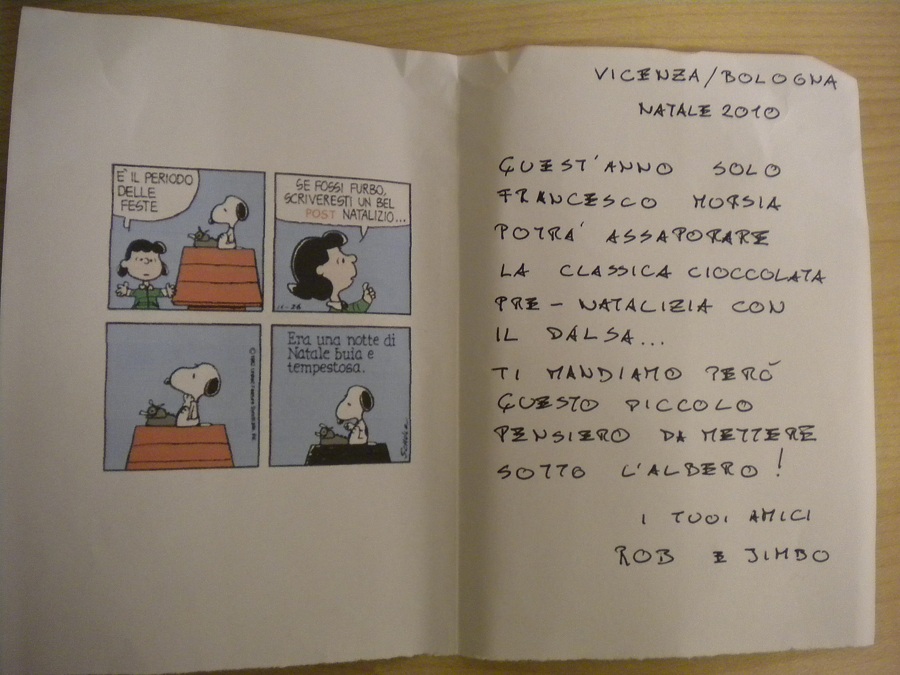 E' IL PERIODO
DELLE
FESTE
SE FOSSI FURBO,
SCRIVERESTI UN BEL
POST NATALIZIO...
11-26
Era una notte di
Natale buia e
tempestosa.
VICENZA/BOLOGNA
NATALE 2010
QUEST'ANNO SOLO
FRANCESCO MORSIA
POTRA' ASSAPORARE
LA CLASSICA CIOCCOLATA
PRE-NATALIZIA CON
IL DALSA...
TI MANDIAMO PERÒ
QUESTO PICCOLO
PENSIERO DA METTERE
SOTTO L'ALBERO!
I TUOI AMICI
ROB E JIMBO